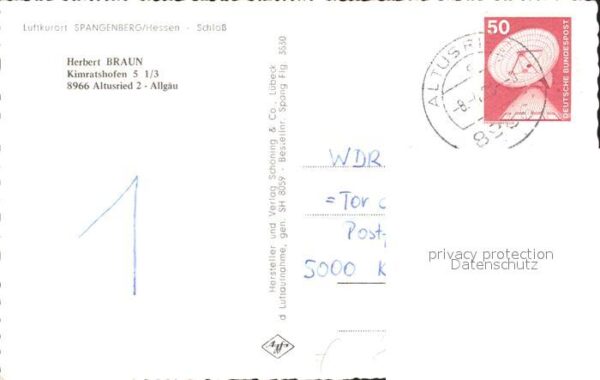 Luftkurort SPANGENBERG/Hessen - Schloß
Herbert BRAUN
Kimratshofen 5 1/3
8966 Altusried 2 - Allgäu
1
Hersteller und Verlag Schöning & Co., Lübeck
d Luftaufnahme, gen. SH 8059 - Bestellnr. Spang Flg. 3550
50
DEUTSCHE BUNDESPOST
ALTUSRI
WDR
= Tor
Post
5000 K
privacy protection
Datenschutz